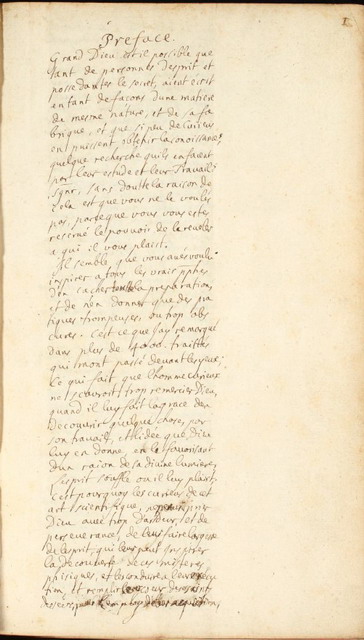 1
Preface
Grand Dieu est il possible que
tant de personnes Desprit et
possedantes le secret, aient escrit
en tant de facons D'une matiere
de mesme nature, et de sa fa
brique, et que si peu de Curieux
en puissent obtenir la conoissance,
quelque recherche quils en faient
par leur estude et leur Travail:
Sgnr, sans doutte la raison de
Cela est que vous ne le voulés
pas. parceque vous vous estes
reservé le pouvoir de la reveler
a qui il vous plaist.
Il semble que vous avés voulu
inspirer a tous les vrais pphes
D'en cacher la preparation
et de n'en donner que des pra
tiques trompeuses, ou trop obs
cures. C'est ce que j'ay remarqué
dans plus de 4000. traittés
qui m'ont passé devant les yeux:
Ce qui fait que l'homme curieux
ne scauroit trop remercier Dieu,
quand il luy fait la grace de
Decouvrir quelque chose, par
son travail, et l'idée que Dieu
luy en donne, en le favorisant
d'un raion de sa divine lumiere,
l'esprit souffle ou il luy plaist,
C'est pourquoy les curieux de cet
art scientifique,
Dieu avec trop d'ardeur, et de
perseverance, de leur faire la grace
de l'esprit, qui leur peut inspirer
la decouverte de ces misteres
phisiques, et les conduire a
tion, et remplir